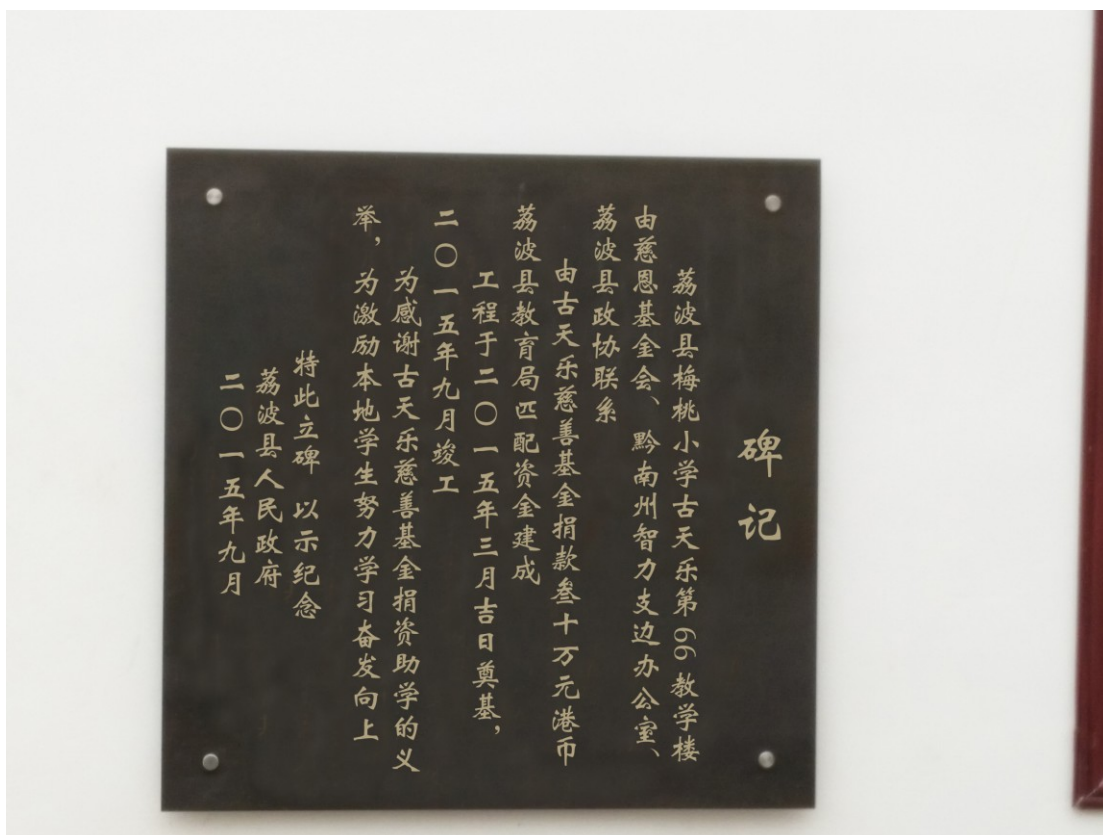 碑记
荔波县梅桃小学古天乐第66教学楼
由慈恩基金会、黔南州智力支边办公室、
荔波县政协联系
由古天乐慈善基金捐款叁十万元港币
荔波县教育局匹配资金建成
工程于二〇一五年三月吉日奠基，
二〇一五年九月竣工
为感谢古天乐慈善基金捐资助学的义
举，为激励本地学生努力学习奋发向上
特此立碑 以示纪念
荔波县人民政府
二〇一五年九月